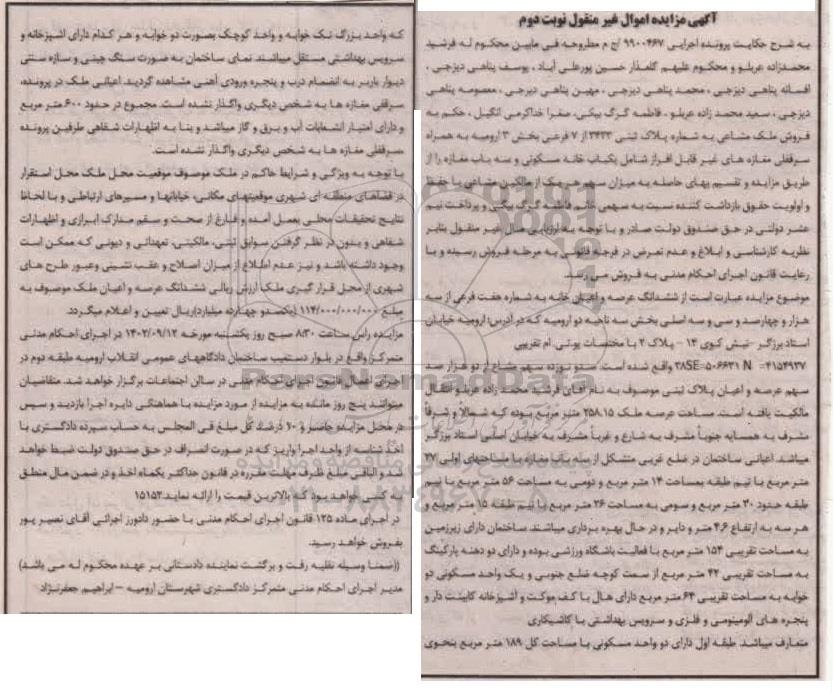 آگهی مزایده اموال غیر منقول نوبت دوم
به شرح حکایت پرونده اجرایی ۹۹۰۰۴۶۷ /ج م مطروحه فی مابین محکوم له فرشید
محمدزاده عربلو و محکوم علیهم گلعذار حسین پورعلی آباد ، یوسف پناهی دیزجی ،
افسانه پناهی دیزجی ، محمد پناهی دیزجی ، مهین پناهی دیزجی ، معصومه پناهی
دیزجی ، سعید محمد زاده عربلو ، فاطمه گرگ بیگی، صغرا خداکرمی انگیل ، حکم به
فروش ملک مشاعی به شماره پلاک ثبتی ۳۴۳۳ از ۷ فرعی بخش ۳ ارومیه به همراه
سرقفلی مغازه های غیر قابل افراز شامل یکباب خانه مسکونی و سه باب مغازه را از
طریق مزایده و تقسیم بهای حاصله به میزان سهم هر یک از مالکین مشاعی با حفظ
و اولویت حقوق بازداشت کننده نسبت به سهمی خانم فاطمه گرگ بیگی و پرداخت نیم
عشر دولتی در حق صندوق دولت صادر و با توجه به ارزیابی مال غیر منقول بنابر
نظریه کارشناسی و ابلاغ و عدم تعرض در فرجه قانونی به مرحله فروش رسیده و با
رعایت قانون اجرای احکام مدنی به فروش می رسد.
موضوع مزایده عبارت است از ششدانگ عرصه و اعیان خانه به شماره هفت فرعی از سه
هزار و چهارصد و سی و سه اصلی بخش سه ناحیه دو ارومیه که در آدرس: ارومیه خیابان
استاد برزگر - نبش کوی ۱۴ - پلاک ۲ با مختصات یوتی ام تقریبی
۳۸SE=۵۰۶۶۳۱ N =۴۱۵۴۹۳۷ واقع شده است. صدو نوزده سهم مشاع از دو هزار صد
سهم عرصه و اعیان پلاک ثبتی موصوف به نام آقای فرشید محمد زاده عربلو انتقال
مالکیت یافته است. مساحت عرصه ملک ۲۵۸.۱۵ متر مربع بوده که شمالا و شرقاً
مشرف به همسایه جنوباً مشرف به شارع و غرباً مشرف به خیابان اصلی استاد برزگر
میباشد. اعیانی ساختمان در ضلع غربی متشکل از سه باب مغازه با مساحتهای اولی ۲۷
متر مربع با نیم طبقه بمساحت ۱۴ متر مربع و دومی به مساحت ۵۶ متر مربع با نیم
طبقه حدود ۳۰ متر مربع و سومی به مساحت ۲۶ متر مربع با نیم طبقه ۱۵ متر مربع و
هر سه به ارتفاع ۴٫۶ متر و دایر و در حال بهره برداری میباشند. ساختمان دارای زیرزمین
به مساحت تقریبی ۱۵۴ متر مربع با فعالیت باشگاه ورزشی بوده و دارای دو دهنه پارکینگ
به مساحت تقریبی ۴۲ متر مربع از سمت کوچه ضلع جنوبی و یک واحد مسکونی دو
خوابه به مساحت تقریبی ۶۴ متر مربع دارای هال با کف موکت و آشپزخانه کابینت دار و
پنجره های آلومینومی و فلزی و سرویس بهداشتی با کاشیکاری
متعارف میباشد. طبقه اول دارای دو واحد مسکونی با مساحت کل ۱۸۹ متر مربع بنحوی
که واحد بزرگ تک خوابه و واحد کوچک بصورت دو خوابه و هر کدام دارای آشپزخانه و
سرویس بهداشتی مستقل میباشند. نمای ساختمان به صورت سنگ چینی و سازه سنتی
دیوار باربر به انضمام درب و پنجره ورودی آهنی مشاهده گردید. اعیانی ملک در پرونده،
سرقفلی مغازه ها به شخص دیگری واگذار نشده است. مجموع در حدود ۶۰۰ متر مربع
و دارای امتیاز انشعابات آب و برق و گاز میباشد و بنا به اظهارات شفاهی طرفین پرونده
،سرقفلی مغازه ها به شخص دیگری واگذار نشده است.
با توجه به ویژگی و شرایط حاکم در ملک موصوف موقعیت محل ملک محل استقرار
در فضاهای منطقه ای شهری موقعیتهای مکانی، خیابانها و مسیرهای ارتباطی و با لحاظ
نتایج تحقیقات محلی بعمل آمده و فارغ از صحت و سقم مدارک ابرازی و اظهارات
شفاهی و بدون در نظر گرفتن سوابق ثبتی، مالکیتی، تعهداتی و دیونی که ممکن است
وجود داشته باشد و نیز عدم اطلاع از میزان اصلاح و عقب نشینی وعبور طرح های
شهری از محل قرار گیری ملک ارزش ریالی ششدانگ عرصه و اعیان ملک موصوف به
مبلغ ۱۱۴/۰۰۰/۰۰۰/۰۰۰ (یکصدو چهارده میلیارد)ریال تعیین و اعلام میگردد.
مزایده راس ساعت ۸:۳۰ صبح روز یکشنبه مورخه ۱۴۰۲/۰۹/۱۲ در اجرای احکام مدنی
متمرکز واقع در بلوار دستغیب ساختمان دادگاههای عمومی انقلاب ارومیه طبقه دوم در
اجرای اعمال قانون اجرای احکام مدنی در سالن اجتماعات برگزار خواهد شد. متقاضیان
میتوانند پنج روز مانده به مزایده از مورد مزایده با هماهنگی دایره اجرا بازدید و سپس
در محل مزایده حاضر و ۱۰ درصد کل مبلغ فی المجلس به حساب سپرده دادگستری با
اخذ شناسه از واحد اجرا واریز که در صورت انصراف در حق صندوق دولت ضبط خواهد
شد و الباقی مبلغ ظرف مهلت مقرره در قانون حداکثر یکماه اخذ و در ضمن مال متعلق
به کسی خواهد بود که بالاترین قیمت را ارائه نماید.۱۵۱۵۲
در اجرای ماده ۱۲۵ قانون اجرای احکام مدنی با حضور دادورز اجرائی آقای نصیر پور
بفروش خواهد رسید.
((ضمنا وسیله نقلیه رفت و برگشت نماینده دادستانی بر عهده محکوم له می باشد)
مدیر اجرای احکام مدنی متمرکز دادگستری شهرستان ارومیه – ابراهیم جعفرنژاد
ParsNamadData